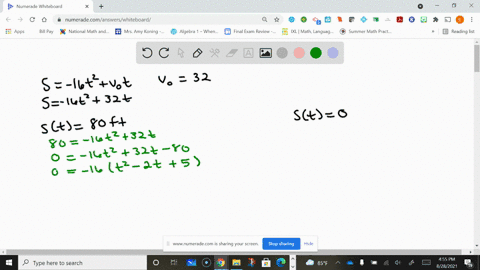 Numerade Whiteboard
numerade.com/answers/whiteboard/
Apps
Bill Pay
National Math and...
Mrs. Amy Koning -...
Algebra 1 – Whenm...
Final Exam Review -...
IXL | Math, Languag...
Summer Math Pract...
Reading list
S = -16t² + v₀t
v₀ = 32
S = -16t² + 32t
S(t) = 80 ft
S(t) = 0
80 = -16t² + 32t
0 = -16t² + 32t - 80
0 = -16(t² - 2t + 5)
www.numerade.com is sharing your screen.
Stop sharing
Hide
Type here to search
85°F
4:55 PM
8/28/2021